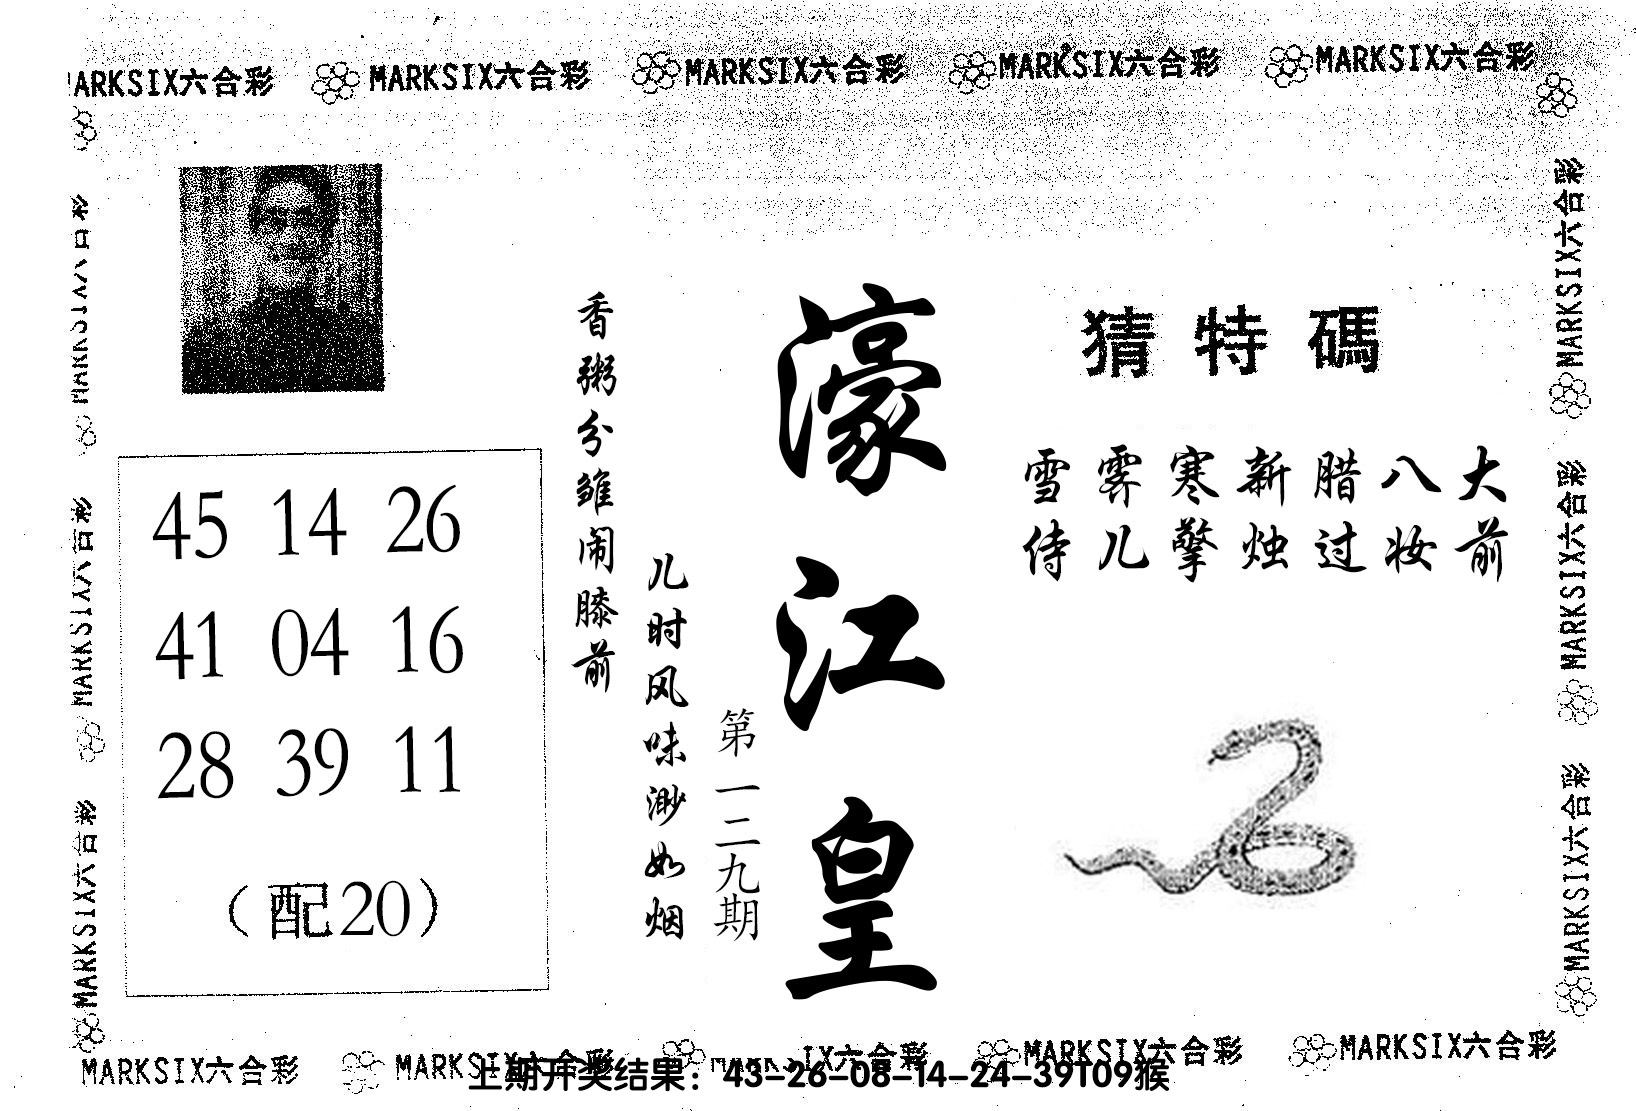 MARKSIX六合彩 MARKSIX六合彩 MARKSIX六合彩 MARKSIX六合彩 MARKSIX六合彩
猜特碼
雪霁寒新腊八大
侍儿擎烛过妆前
濠江皇
第一二九期
儿时风味渺如烟
香粥分雏闹膝前
45 14 26
41 04 16
28 39 11
（配20）
MARKSIX六合彩
MARKSIX六合彩
MARKSIX六合彩
MARKSIX六合彩
MARKSIX六合彩
MARKSIX六合彩
MARKSIX六合彩 MARKSIX六合彩 MARKSIX六合彩 MARKSIX六合彩 MARKSIX六合彩
上期开奖结果：43-26-08-14-24-39T09猴